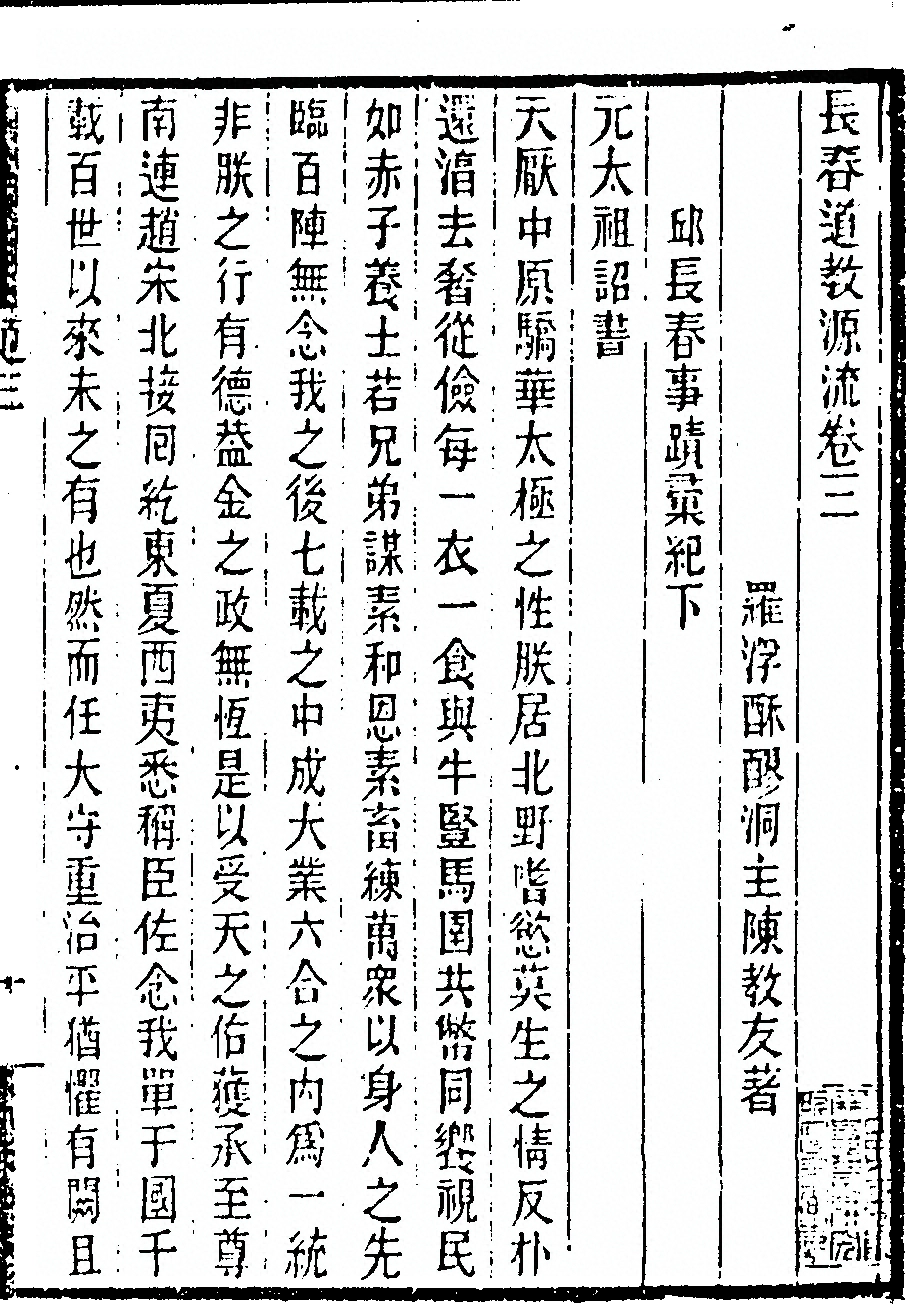 長春道教源流卷三
羅浮酥醪洞主陳教友著
邱長春事蹟彙紀下
元太祖詔書
天厭中原驕華太極之性朕居北野嗜慾莫生之情反朴
還湻去奢從儉每一衣一食與牛豎馬圉共幣同饗視民
如赤子養士若兄弟謀素和恩素畜練萬衆以身人之先
臨百陣無念我之後七載之中成大業六合之內爲一統
非朕之行有德葢金之政無恆是以受天之佑獲承至尊
南連趙宋北接囘紇東夏西夷悉稱臣佐念我單于國千
載百世以來未之有也然而任大守重治平猶懼有闕且
道三